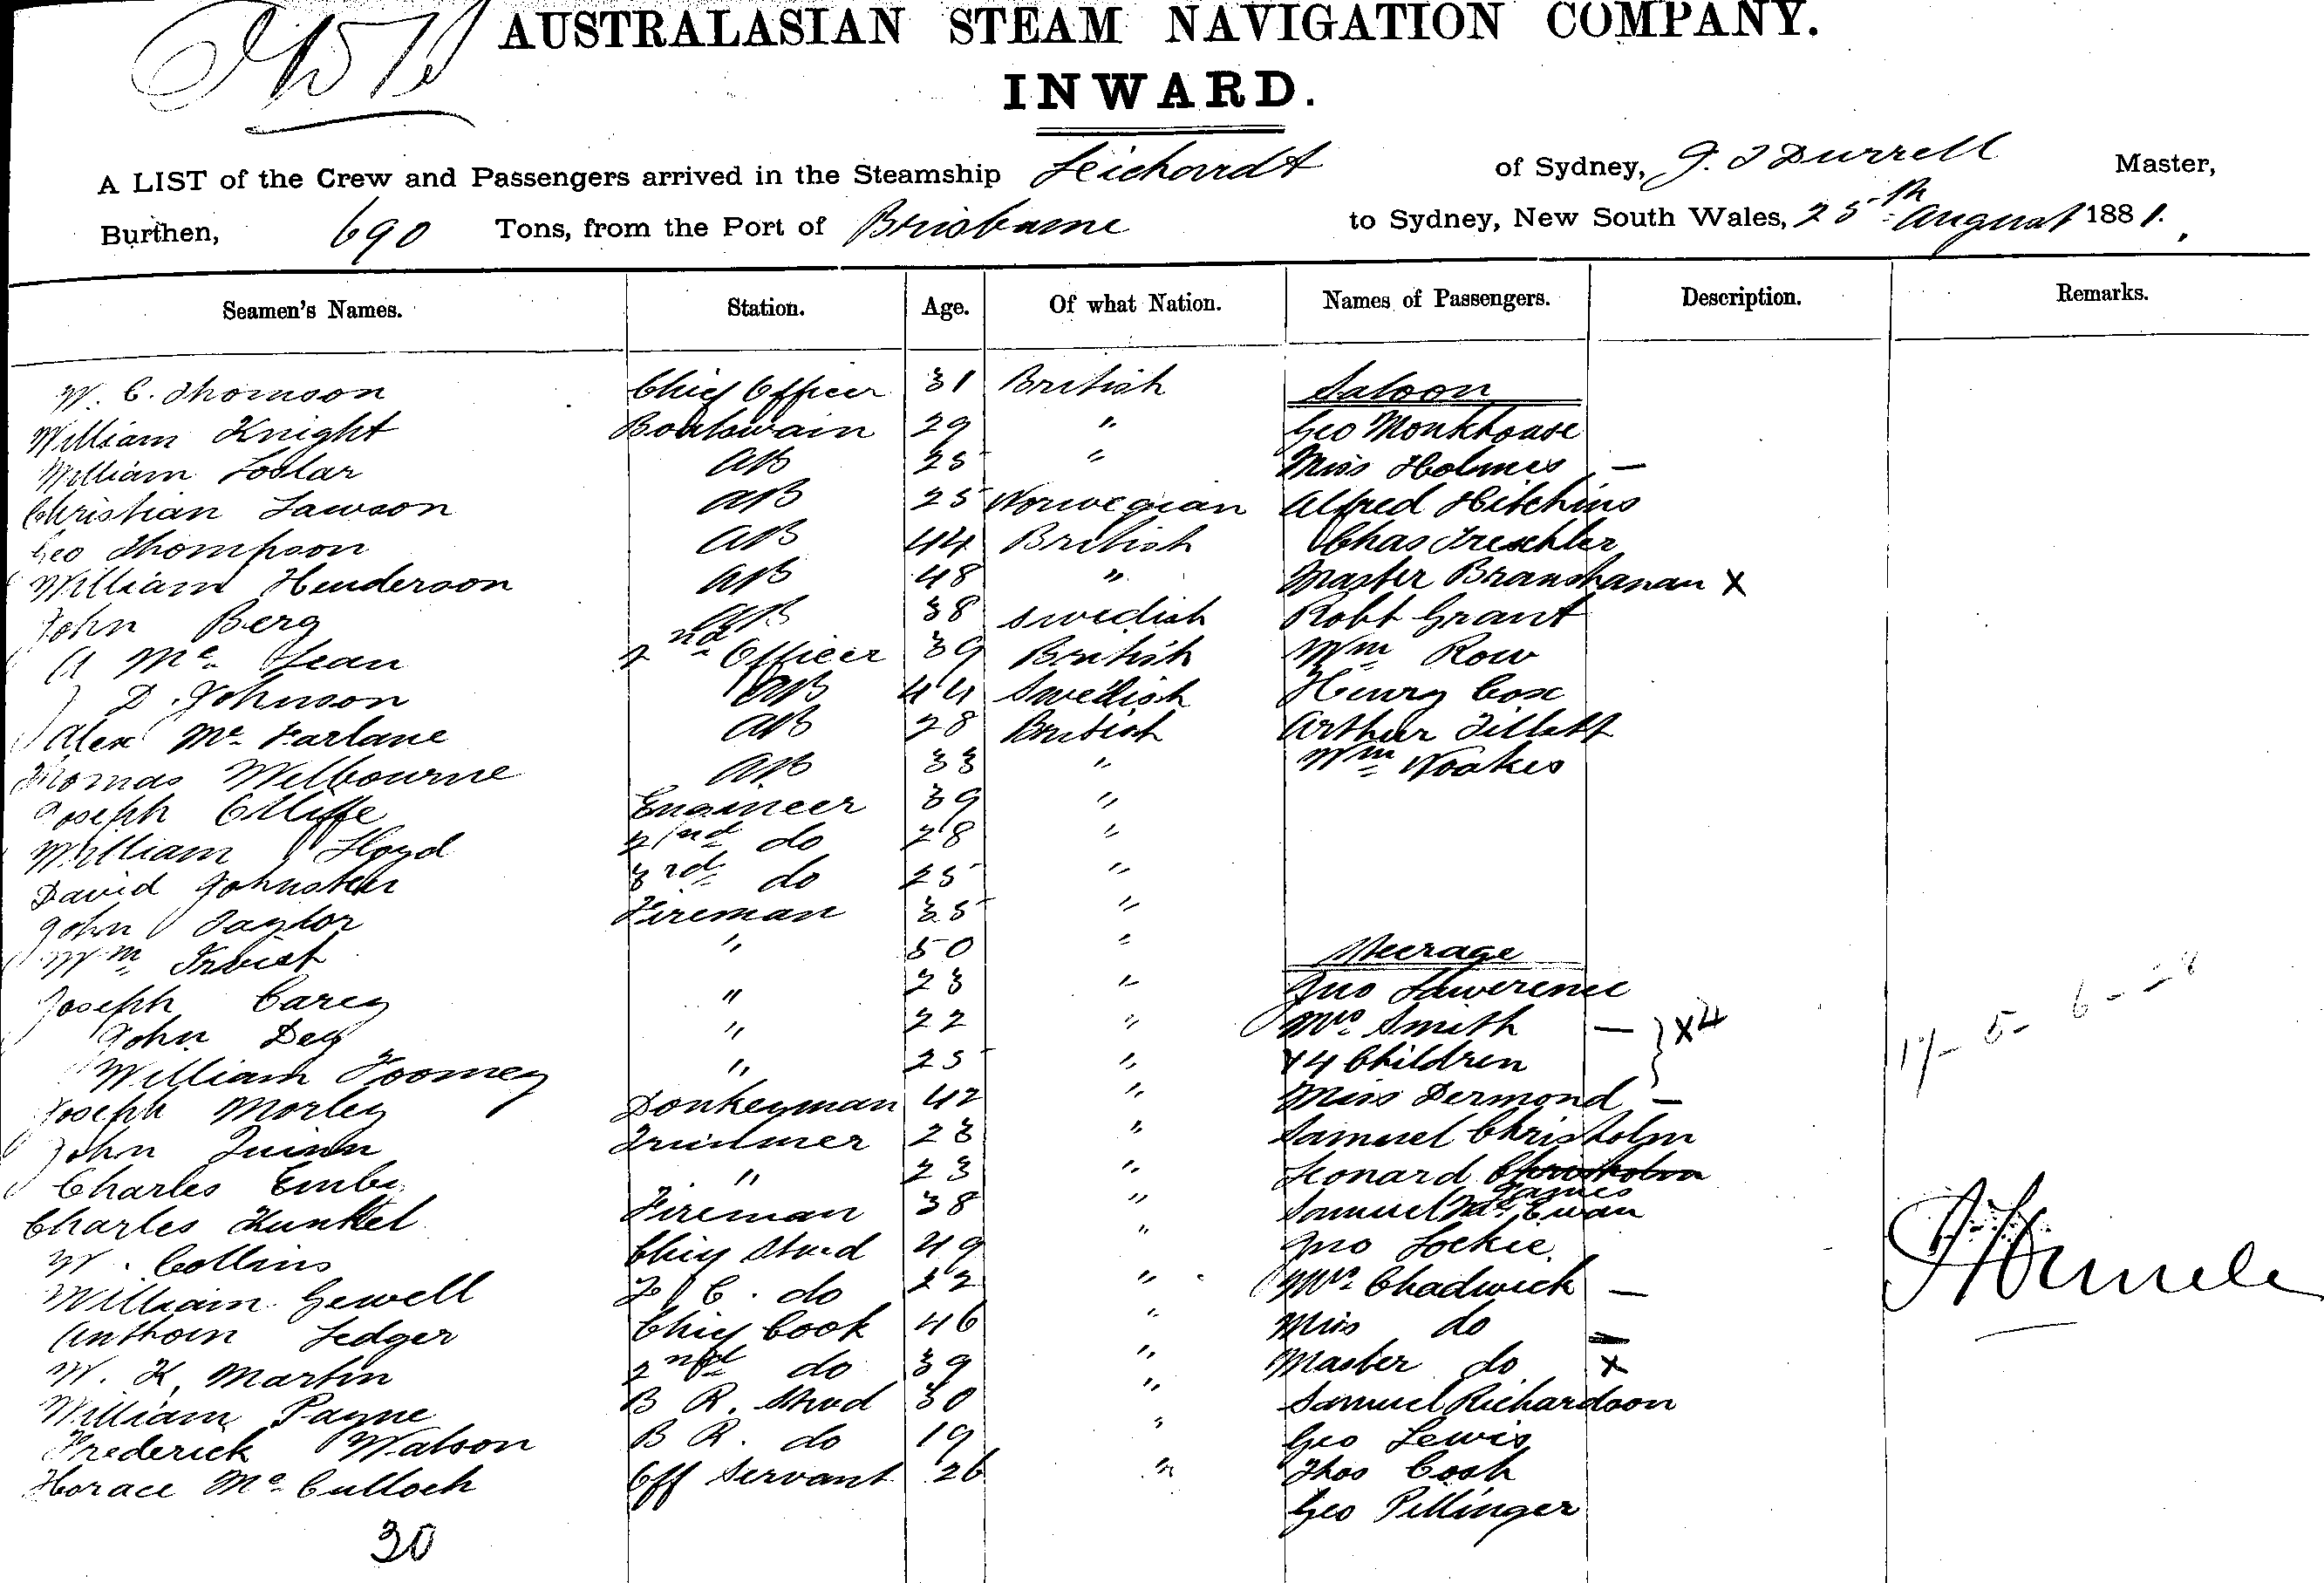 AUSTRALASIAN STEAM NAVIGATION COMPANY.
INWARD.
A LIST of the Crew and Passengers arrived in the Steamship Leichardt of Sydney, J. T Durrell Master,
Burthen, 690 Tons, from the Port of Brisbane to Sydney, New South Wales, 25th August 1881.
Seamen's Names. Station. Age. Of what Nation. Names of Passengers. Description. Remarks.
W. C. Thomson Chief Officer 31 British Saloon
William Knight Boatswain 29 " Geo Monkhouse
William Loslar AB 25 " Miss Holmes —
Christian Lawson AB 25 Norwegian Alfred Hitchins
Geo Thompson AB 44 British Chas
William Henderson AB 48 " Master X
John Berg AB 38 Swedish Robt Grant
A Mc Lean 2nd Officer 39 British Wm Row
D. Johnson AB 44 Swedish Henry Cox
Alex Mc Farlane AB 28 British Arthur Tillett
Thomas Welbourne AB 33 " Wm Noakes
Joseph Olliffe Engineer 39 "
William Lloyd 2nd do 28 "
David Johnston 3rd do 25 "
John Taylor Fireman 35 "
Wm " 50 " Steerage
Joseph Carey " 23 " Jno Lawerence
John Dey " 22 " Mrs Smith — } X4
William Toomey " 25 " + 4 Children
Joseph Morley Donkeyman 42 " Miss Dermond —
John Quinn Trimmer 23 " Samuel Chrisholm
Charles " 23 " Leonard Chrisholm
James
Charles Kunkel Fireman 38 " Samuel Mc Ewan
W. Collins Chief Stwd 49 " Jno Lockie
William Gewell F C. do 22 " Mrs Chadwick —
Anthoin Ledger Chief Cook 46 " Miss do —
W. K. Martin 2nd do 39 " Master do X
William Payne B R. Stwd 30 " Samuel Richardson
Frederick Watson B R. do 19 " Geo Lewis
Horace Mc Culloch Off Servant 26 " Thos Cosh
Geo Pillinger
30